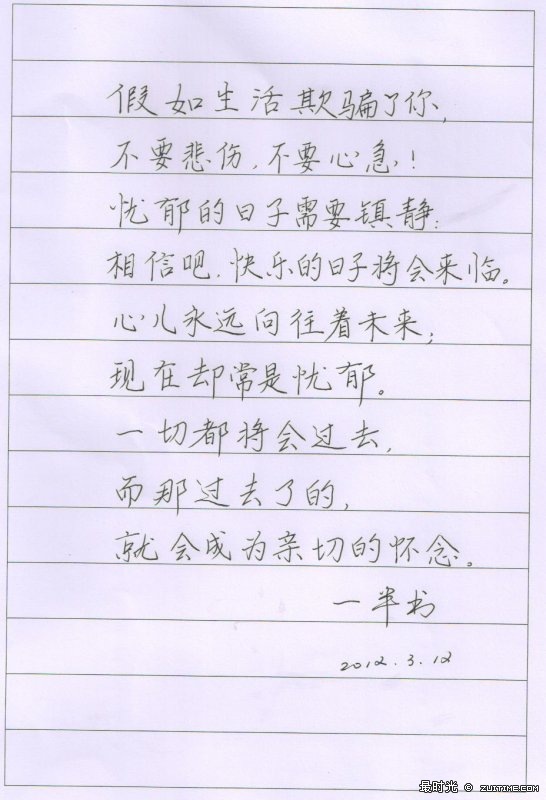 假如生活欺骗了你,
不要悲伤,不要心急!
忧郁的日子需要镇静:
相信吧,快乐的日子将会来临。
心儿永远向往着未来;
现在却常是忧郁。
一切都将会过去,
而那过去了的,
就会成为亲切的怀念。
一半书
2012.3.12
最时光 © ZUITIME.COM